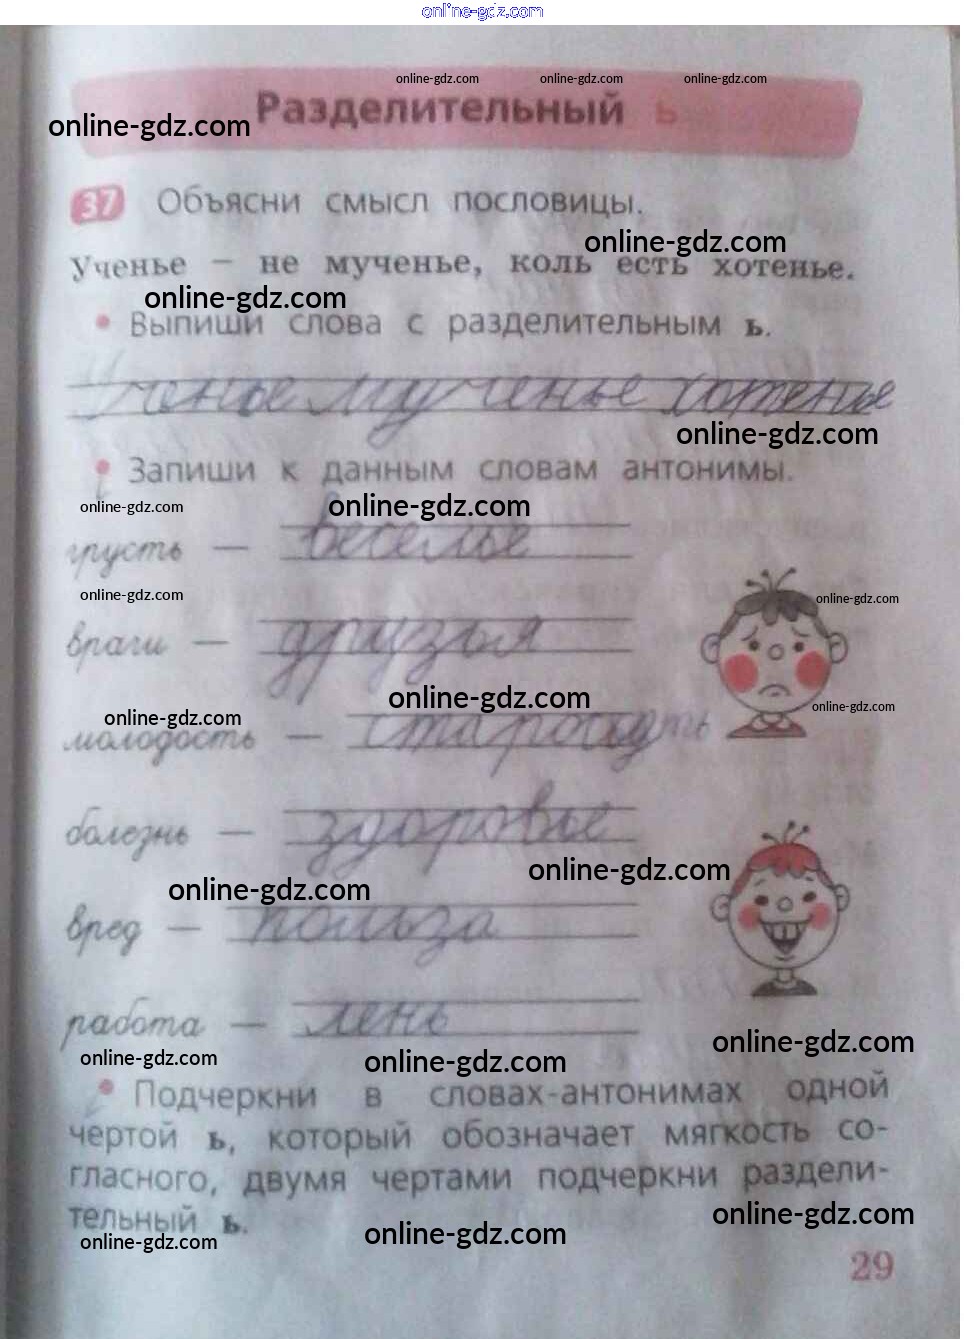 online-gdz.com
online-gdz.com online-gdz.com online-gdz.com
Разделительный ь
online-gdz.com
37 Объясни смысл пословицы.
online-gdz.com
Ученье – не мученье, коль есть хотенье.
online-gdz.com
• Выпиши слова с разделительным ь.
Ученье мученье хотенье
online-gdz.com
• Запиши к данным словам антонимы.
online-gdz.com online-gdz.com
грусть — веселье
online-gdz.com online-gdz.com
враги — друзья
online-gdz.com online-gdz.com
online-gdz.com
молодость — старость
болезнь — здоровье
online-gdz.com
online-gdz.com
вред — польза
работа — лень
online-gdz.com
online-gdz.com online-gdz.com
• Подчеркни в словах-антонимах одной
чертой ь, который обозначает мягкость со-
гласного, двумя чертами подчеркни раздели-
тельный ь.
online-gdz.com
online-gdz.com online-gdz.com
29